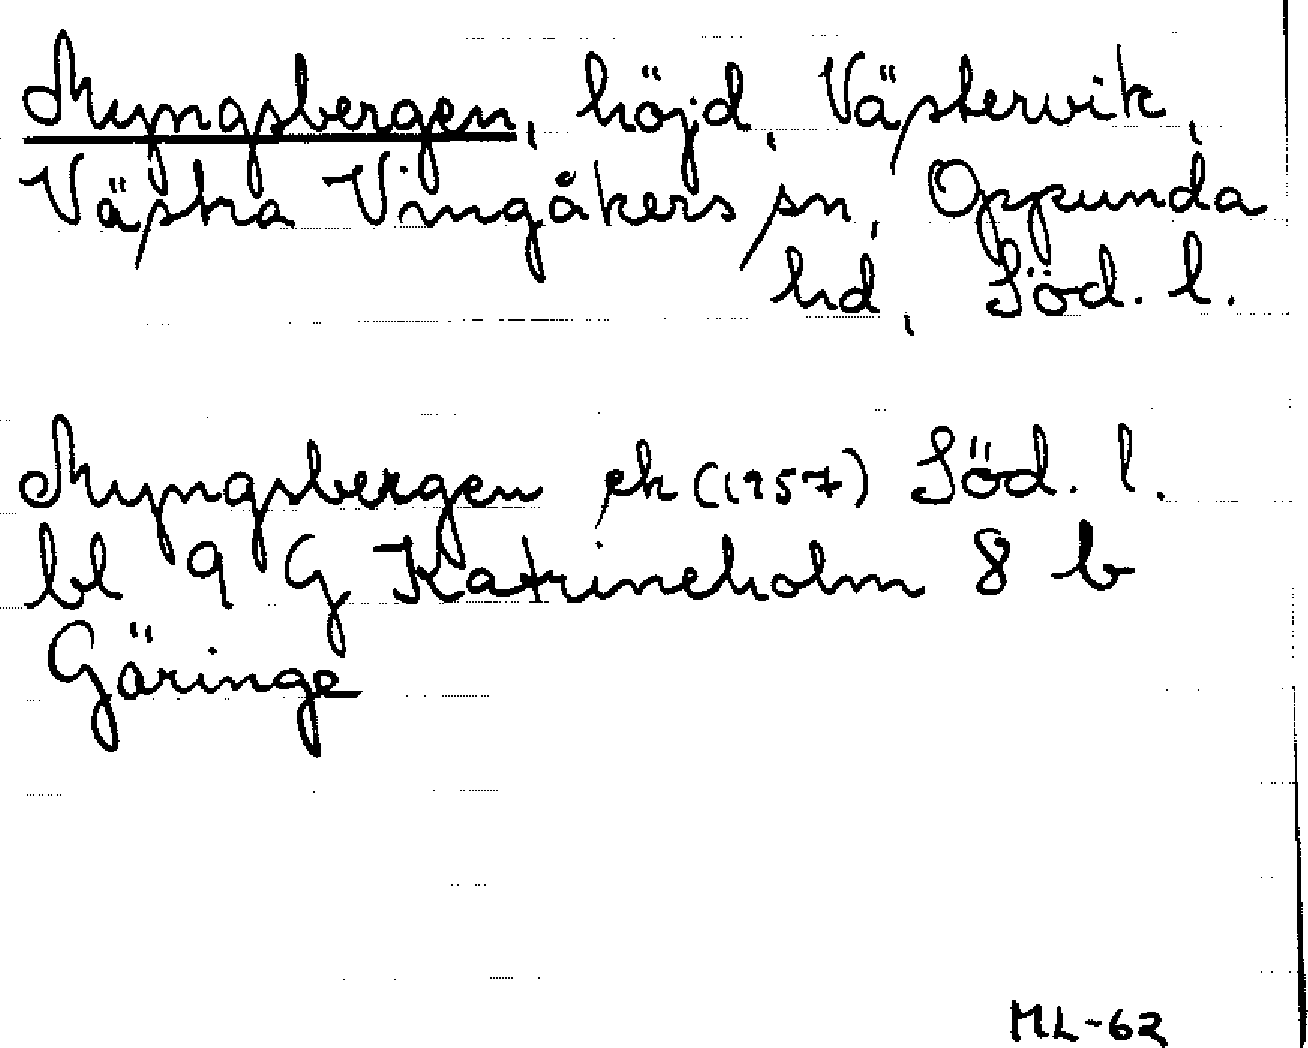 Myngsbergen, höjd, Västervik,
Västra Vingåkers sn, Oppunda
hd, Söd. l.
Myngsbergen ek (1957) Söd. l.
bl 9 G Katrineholm 8 b
Gäringe
ML-62